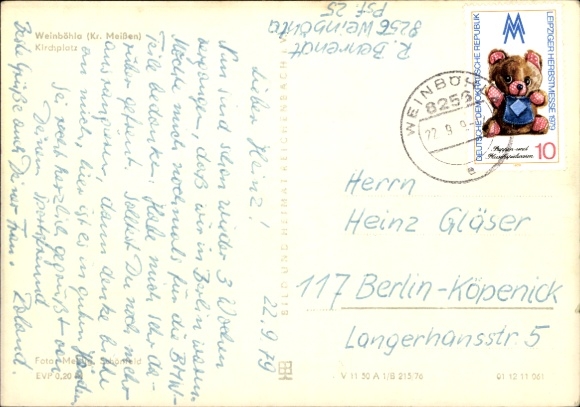 Weinböhla (Kr. Meißen)
Kirchplatz
R. Behrendt
8256 Weinböhla
Psf. 25
DEUTSCHE DEMOKRATISCHE REPUBLIK
LEIPZIGER HERBSTMESSE 1979
Puppen und
Plüschspielwaren
10
WEINBÖHLA
8256
22.9.
a
22.9.79
Lieber Heinz!
Nun sind schon wieder 3 Wochen
vergangen, daß wir in Berlin waren.
Möchte mich nochmals für die BHW-
Teile bedanken. Habe mich sehr da-
rüber gefreut. Solltest Du noch mehr
ausrangieren, dann denke bitte
an mich, hier ist es in guten Händen.
Sei recht herzlich gegrüßt von
Deinem Sportsfreund
Roland.
Viele Grüße auch Deiner Frau.
Herrn
Heinz Gläser
117 Berlin-Köpenick
Langerhansstr 5
BILD UND HEIMAT REICHENBACH
EVP 0,20
V 11 50 A 1/B 215/76
01 12 11 061